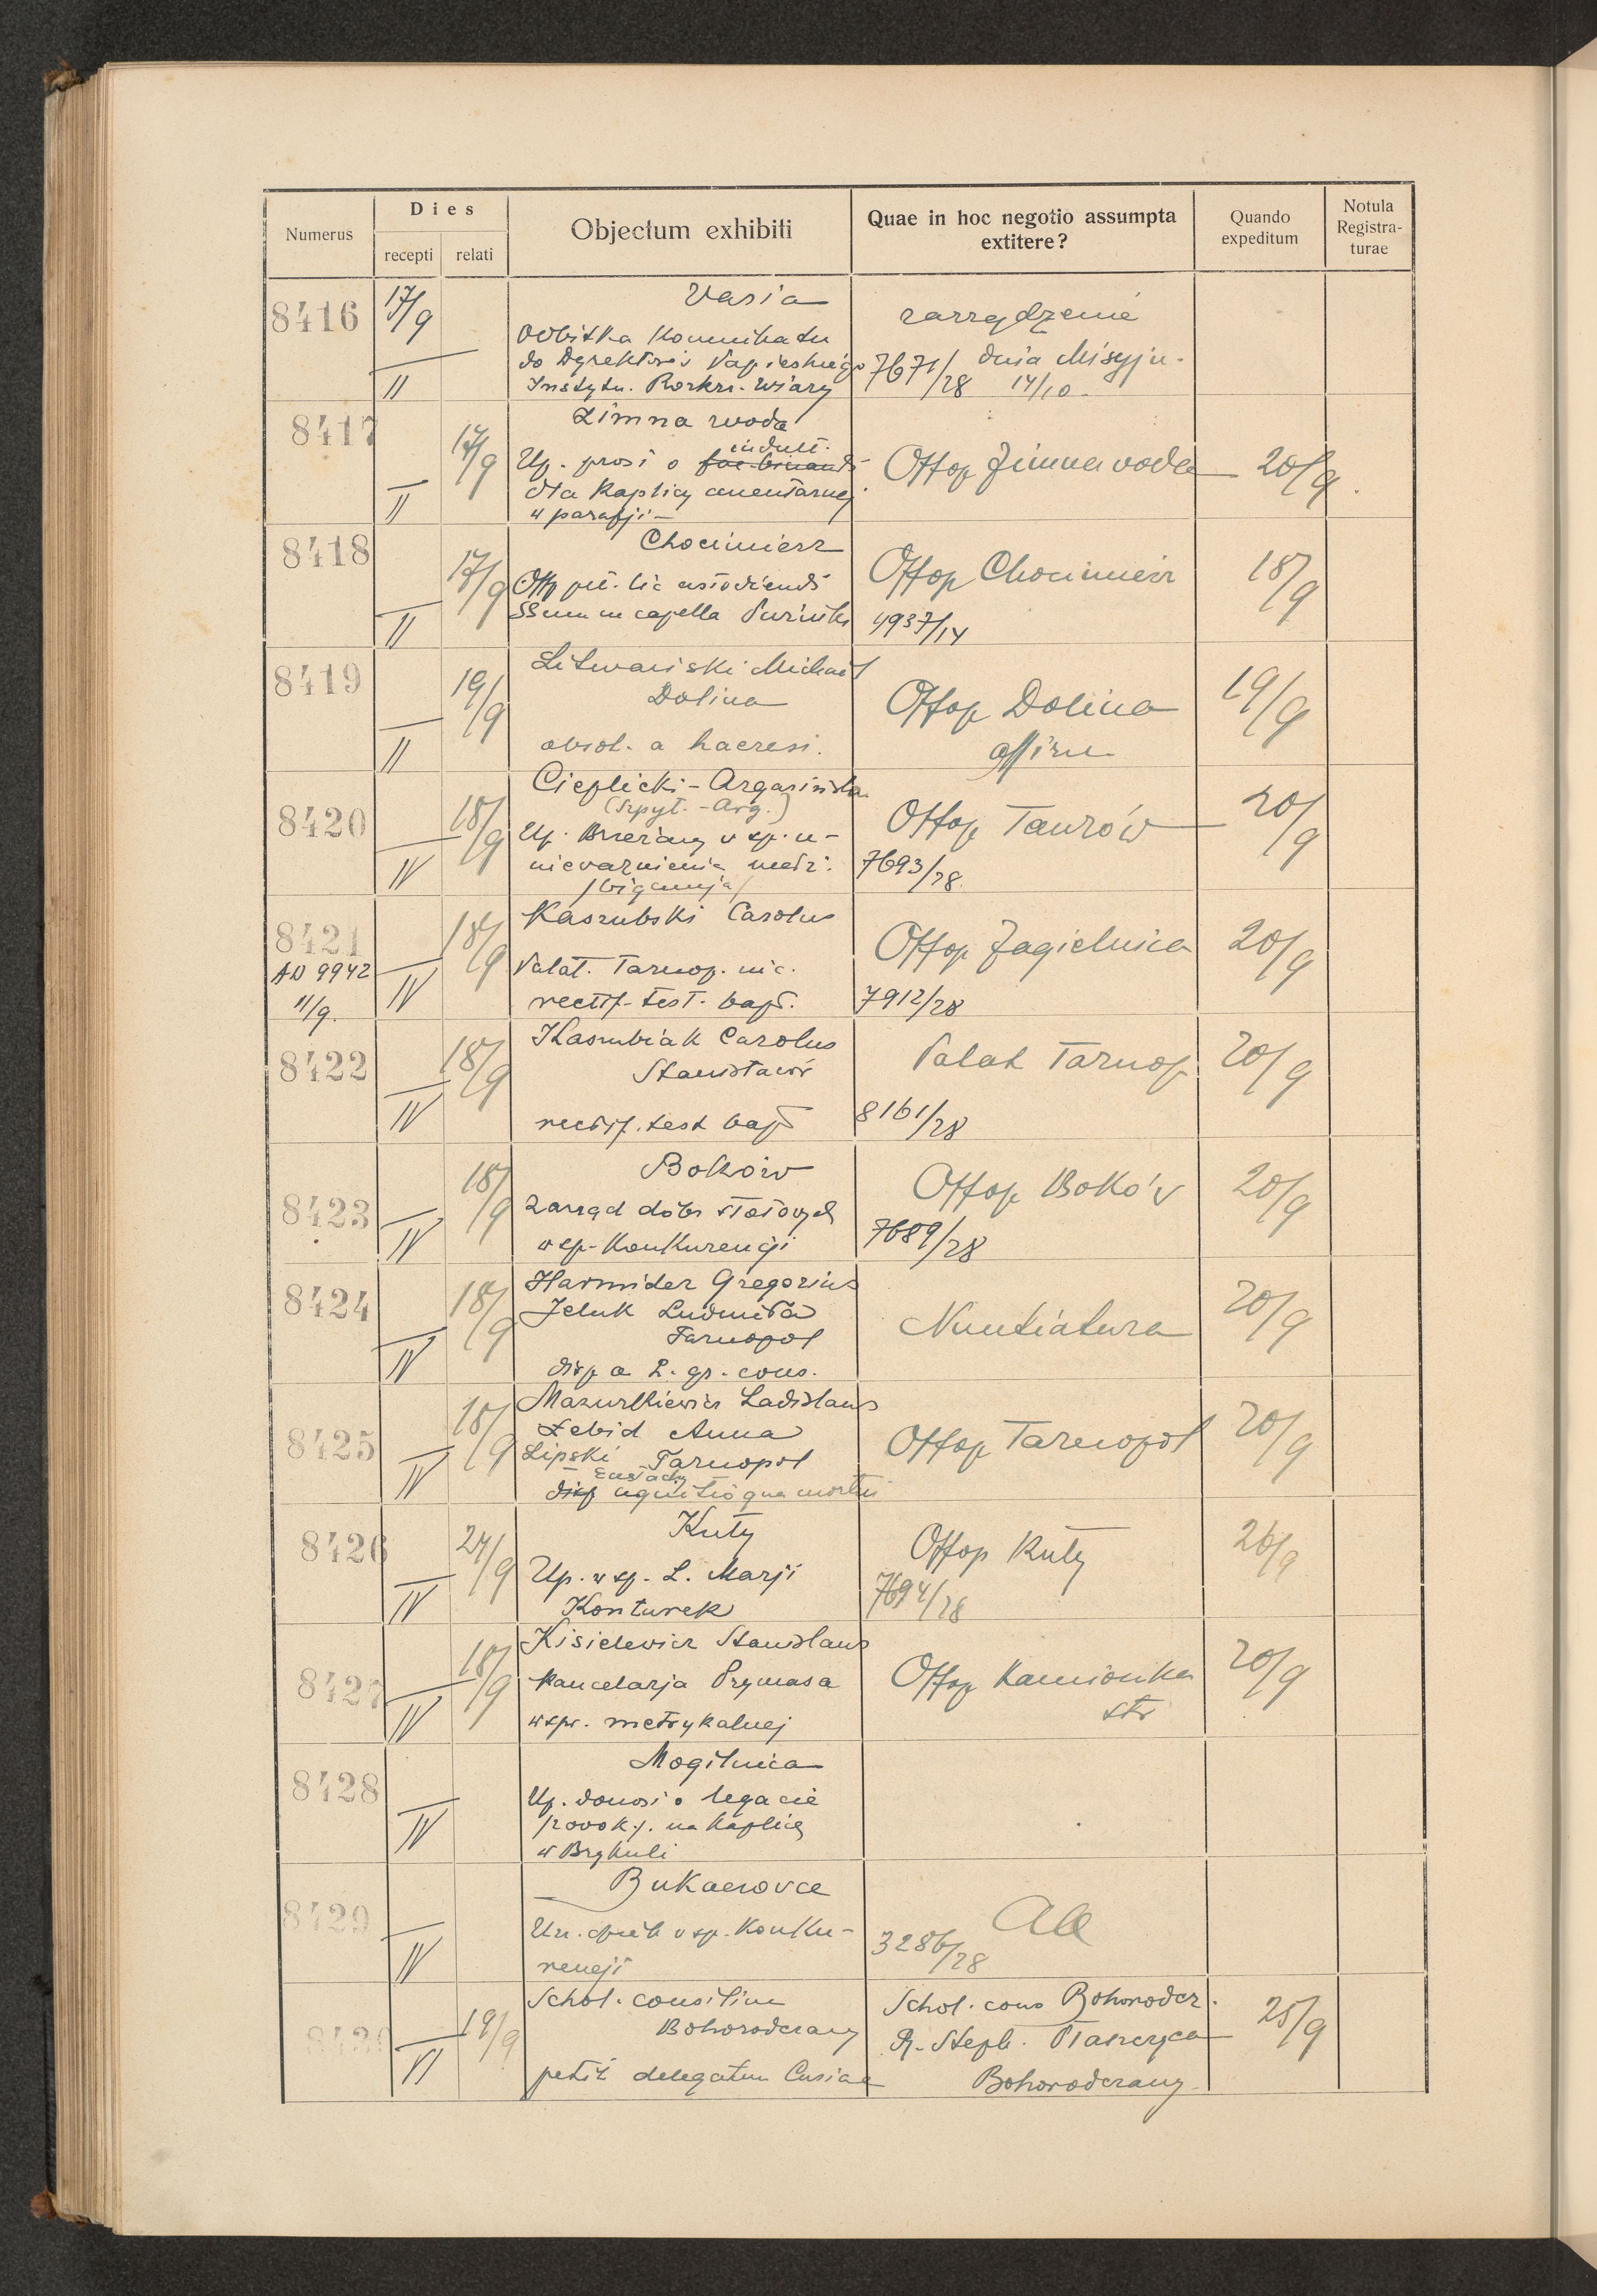 Numerus
Dies
recepti relati
Objectum exhibiti
Quae in hoc negotio assumpta
extitere?
Quando
expeditum
Notula
Registra-
turae
8416 17/9 II
Varia
Odbitka Komunikatu
do Dyrektorów Papieskiego
Instytu. Rozkrz. Wiary
zarządzenie
7671/28 dnia Misyjn.
14/10.
8417 17/9 II
Zimna woda
indult.
Up. prosi o fac. binandi
dla Kaplicy cmentarnej
w parafji
Offop Zimna woda 20/9
8418 17/9 II
Chocimierz
Offp pet. lic asservandi
SSmum in capella
Offop Chocimierz 18/9
4937/14
8419 19/9 II
Litwański Michael
Dolina
absol. a haeresi.
Offop Dolina 19/9
8420 18/9 IV
Cieplicki - Argasińska
(Szpyt. - Arg.)
Up. Brzeżany w sp. u-
nieważnienia małż.
/bigamja/
Offop Taurów 20/9
7693/28.
8421 18/9
AD 9942 IV
11/9.
Kaszubski Carolus
Palat. Tarnop. nic.
rectif. test. bapt.
Offop Jagielnica 20/9
7912/28
8422 18/9 IV
Kaszubiak Carolus
Stanisławów
rectif. test bapt
Palat Tarnop. 20/9
8161/28
8423 18/9 IV
Boków
Zarząd dóbr stołowych
w sp. Konkurencji
Offop Boków 20/9
7689/28
8424 18/9 IV
Harmider Gregorius
Jeluk Ludmiła
Tarnopol
disp a 2. gr. cons.
Nuntiatura 20/9
8425 18/9 IV
Mazurkiewicz Ladislaus
Łebid Anna
Lipski Tarnopol
Eustachy
disp agnitio qua mortui
Offop Tarnopol 20/9
8426 24/9 IV
Kuty
Up. w sp. L. Marji
Konturek
Offop Kuty 26/9
7694/28
8427 18/9 IV
Kisielewicz Stanislaus
Kancelarja Prymasa
w spr. metrykalnej
Offop Kamionka 20/9
str
8428 IV
Mogilnica
Up. donosi o legacie
/2000 K/. na Kaplicę
w Brykuli
8429 IV
Bukaczowce
Urz. w sp. Konku-
rencji
Aa
3286/28
8430 19/9 VI
Schol. consilium
Bohorodczany
petit delegatum Curiae
Schol. cons Bohorodcz. 25/9
R. Steph. Ptaszyca
Bohorodczany